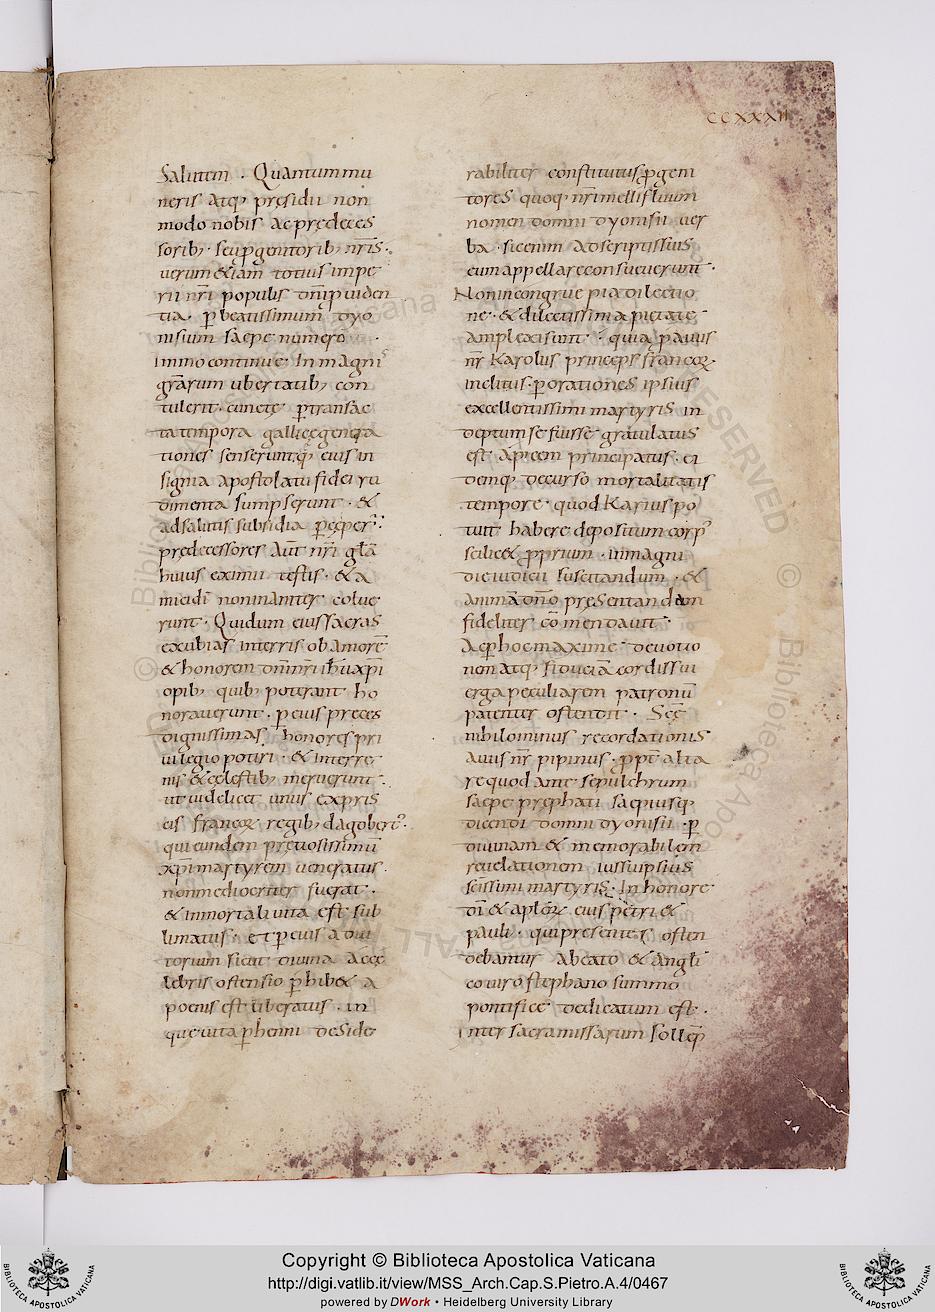 CCXXXII
Salutem . Quantum mu
neris atq; presidii non
modo nobis ac predeces
sorib; seu ꝓgenitorib; nr̄is .
uerum & iam totius impe
rii nr̄i populis dn̄i ꝓuiden
tia . ꝑ beatissimum dyo
nisium saepe numero
immo continue . In magni
grarum ubertatib; con
tulerit . cuncte ꝑ transac
ta tempora gallieę genera
tiones senserunt . qui eius in
signia apostolatu fidei ru
dimenta sumpserunt . &
ad salutis subsidia
predecessores aut̄ nr̄i
huius eximii testis . & a
mici di non inaniter . colue
runt . Qui dum eius sacras
exubias in terris ob amorē
& honorem dn̄i nr̄i ih̄u xp̄i
opib; quib; poterant ho
norauerunt . ꝑ eius preces
dignissimas honores pri
uilegio potiri . & in terre
nis & cęlestib; meruerunt .
ut uidelicet unus ex pris
cis francoꝝ regib; dagobert᾽ .
qui eundem pretiosissimū
xp̄i martyrem ueneratus
non mediocriter fuerat .
& inmortali uita est sub
limatus . et ꝑ eius adiu
torium sicut diuina ac ce
lebris ostensio ꝑhib& a
poenis est liberatus . in
que uita ꝑhenni deside
rabiliter constitutus ꝓgeni
tores quoq; nr̄i mellifluum
nomen domni dyonisii uer
ba . sic enim adscriptissius
eum appellare consueuerunt .
Non incongrue pia dilectio
ne . & dilectissima pietate
amplexi sunt . quia ꝓauus
nr̄ Karolus princeps francoꝝ .
inclitus . ꝑ orationes ipsius
excellentissimi martyris in
deptum se fuisse gratulatus
est . apicem principatus . ei
demq; decurso mortalitatis
tempore . quod Karius po
tuit habere depositum
scilic& ꝓprium . in magni
die iudicii suscitandum . &
animā dn̄o presentandam
fideliter cōmendauit .
Ac ꝑ hoc maxime deuotio
nem atq; fiduciā cordis sui
erga peculiarem patronū
patenter ostendit .
nihilominus recordationis
auus nr̄ pipinus . ꝓpt̄ alta
re quod ante sepulchrum
saepe prephati saepiusq;
dicendi domni dyonisii . ꝑ
diuinam & memorabilem
reuelationem iussu ipsius
sc̄issimi martyris . In honore
dī & ap̄loꝝ eius petri &
pauli . qui presentes osten
debantur a beato & angli
co uiro stephano summo
pontifice dedicatum est .
Inter sacra missarum sollēp
Copyright © Biblioteca Apostolica Vaticana
http://digi.vatlib.it/view/MSS_Arch.Cap.S.Pietro.A.4/0467
powered by DWork • Heidelberg University Library
BIBLIOTECA APOSTOLICA VATICANA
BIBLIOTECA APOSTOLICA VATICANA